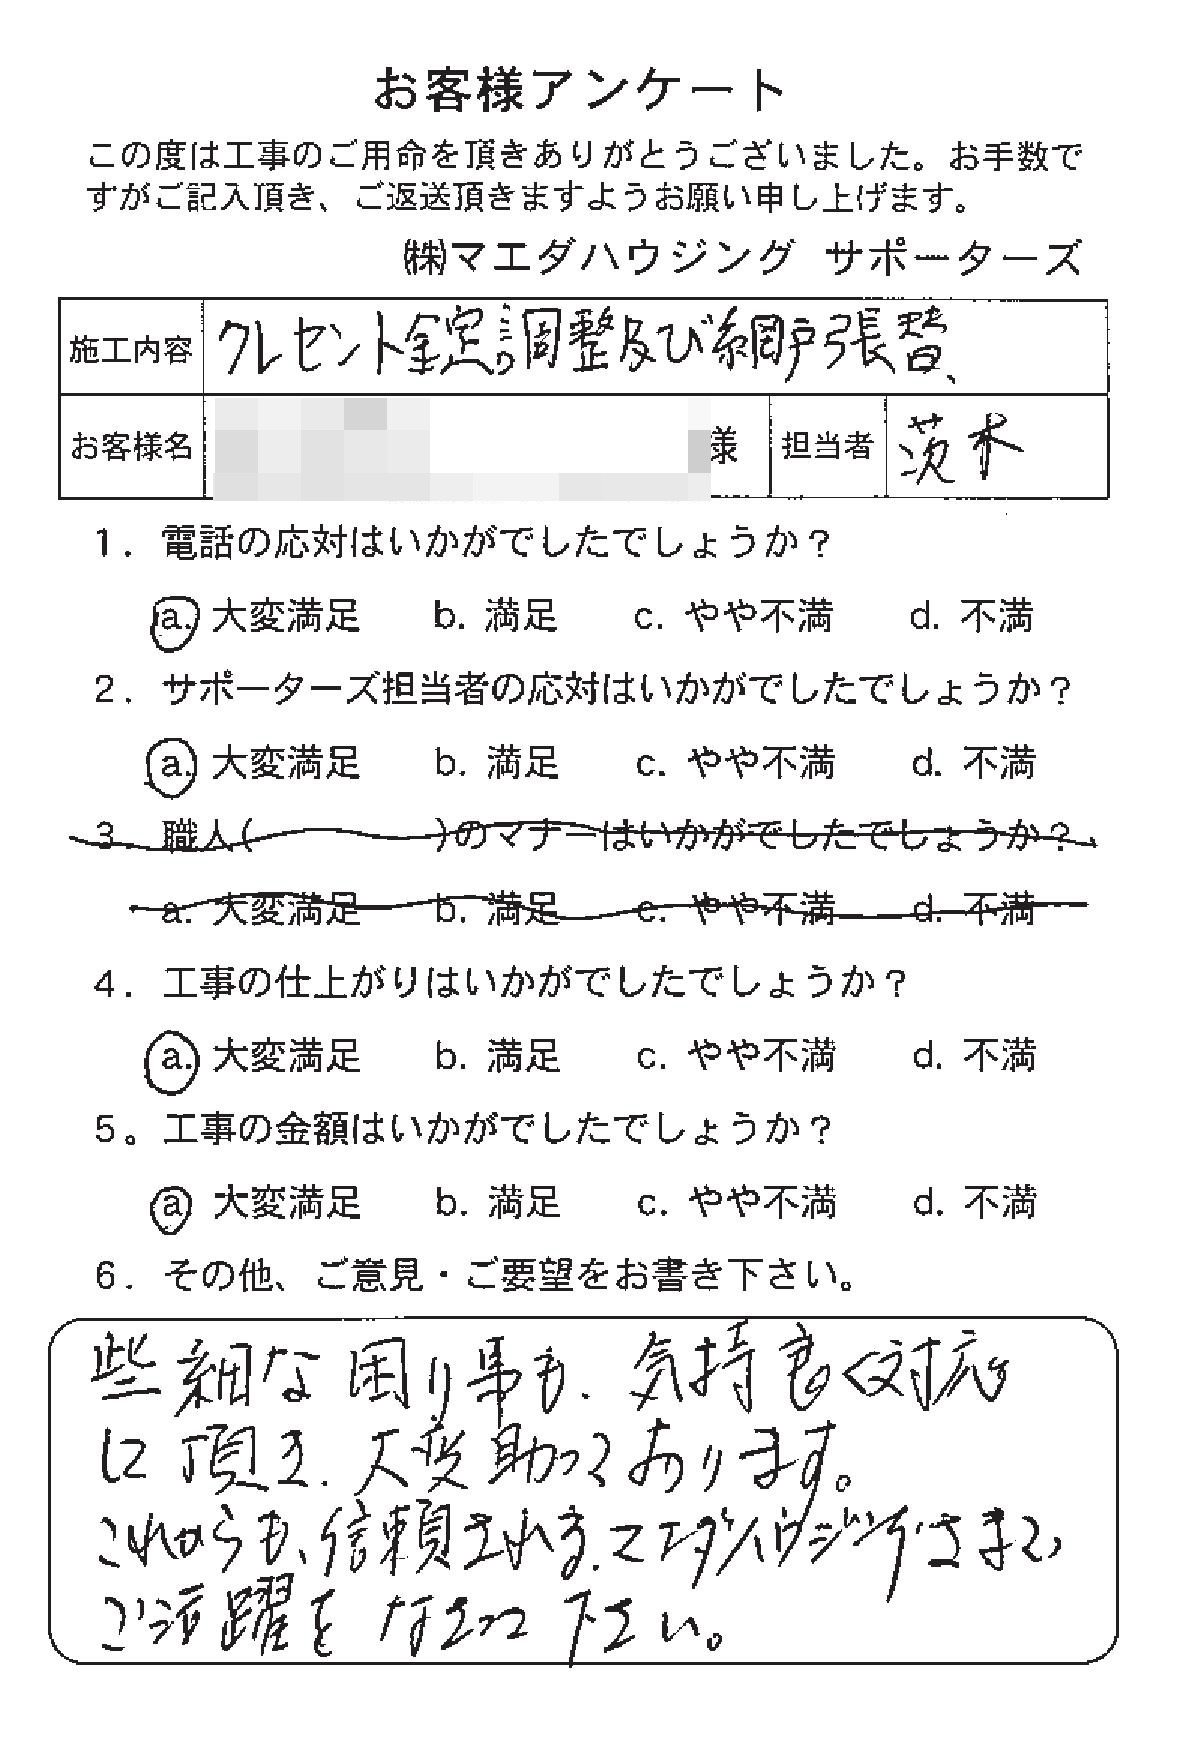 お客様アンケート
この度は工事のご用命を頂きありがとうございました。お手数で
すがご記入頂き、ご返送頂きますようお願い申し上げます。
㈱マエダハウジング サポーターズ
施工内容 クレセント錠の調整及び網戸張替、
お客様名 様 担当者 茨木
1. 電話の応対はいかがでしたでしょうか？
a. 大変満足 b. 満足 c. やや不満 d. 不満
2. サポーターズ担当者の応対はいかがでしたでしょうか？
a. 大変満足 b. 満足 c. やや不満 d. 不満
3. 職人( )のマナーはいかがでしたでしょうか？
a. 大変満足 b. 満足 c. やや不満 d. 不満
4. 工事の仕上がりはいかがでしたでしょうか？
a. 大変満足 b. 満足 c. やや不満 d. 不満
5。工事の金額はいかがでしたでしょうか？
a 大変満足 b. 満足 c. やや不満 d. 不満
6. その他、ご意見・ご要望をお書き下さい。
些細な困り事も、気持良く対応
に頂き、大変助っております。
これからも、信頼される、マエダハウジングさまで
ご活躍を なさって 下さい。